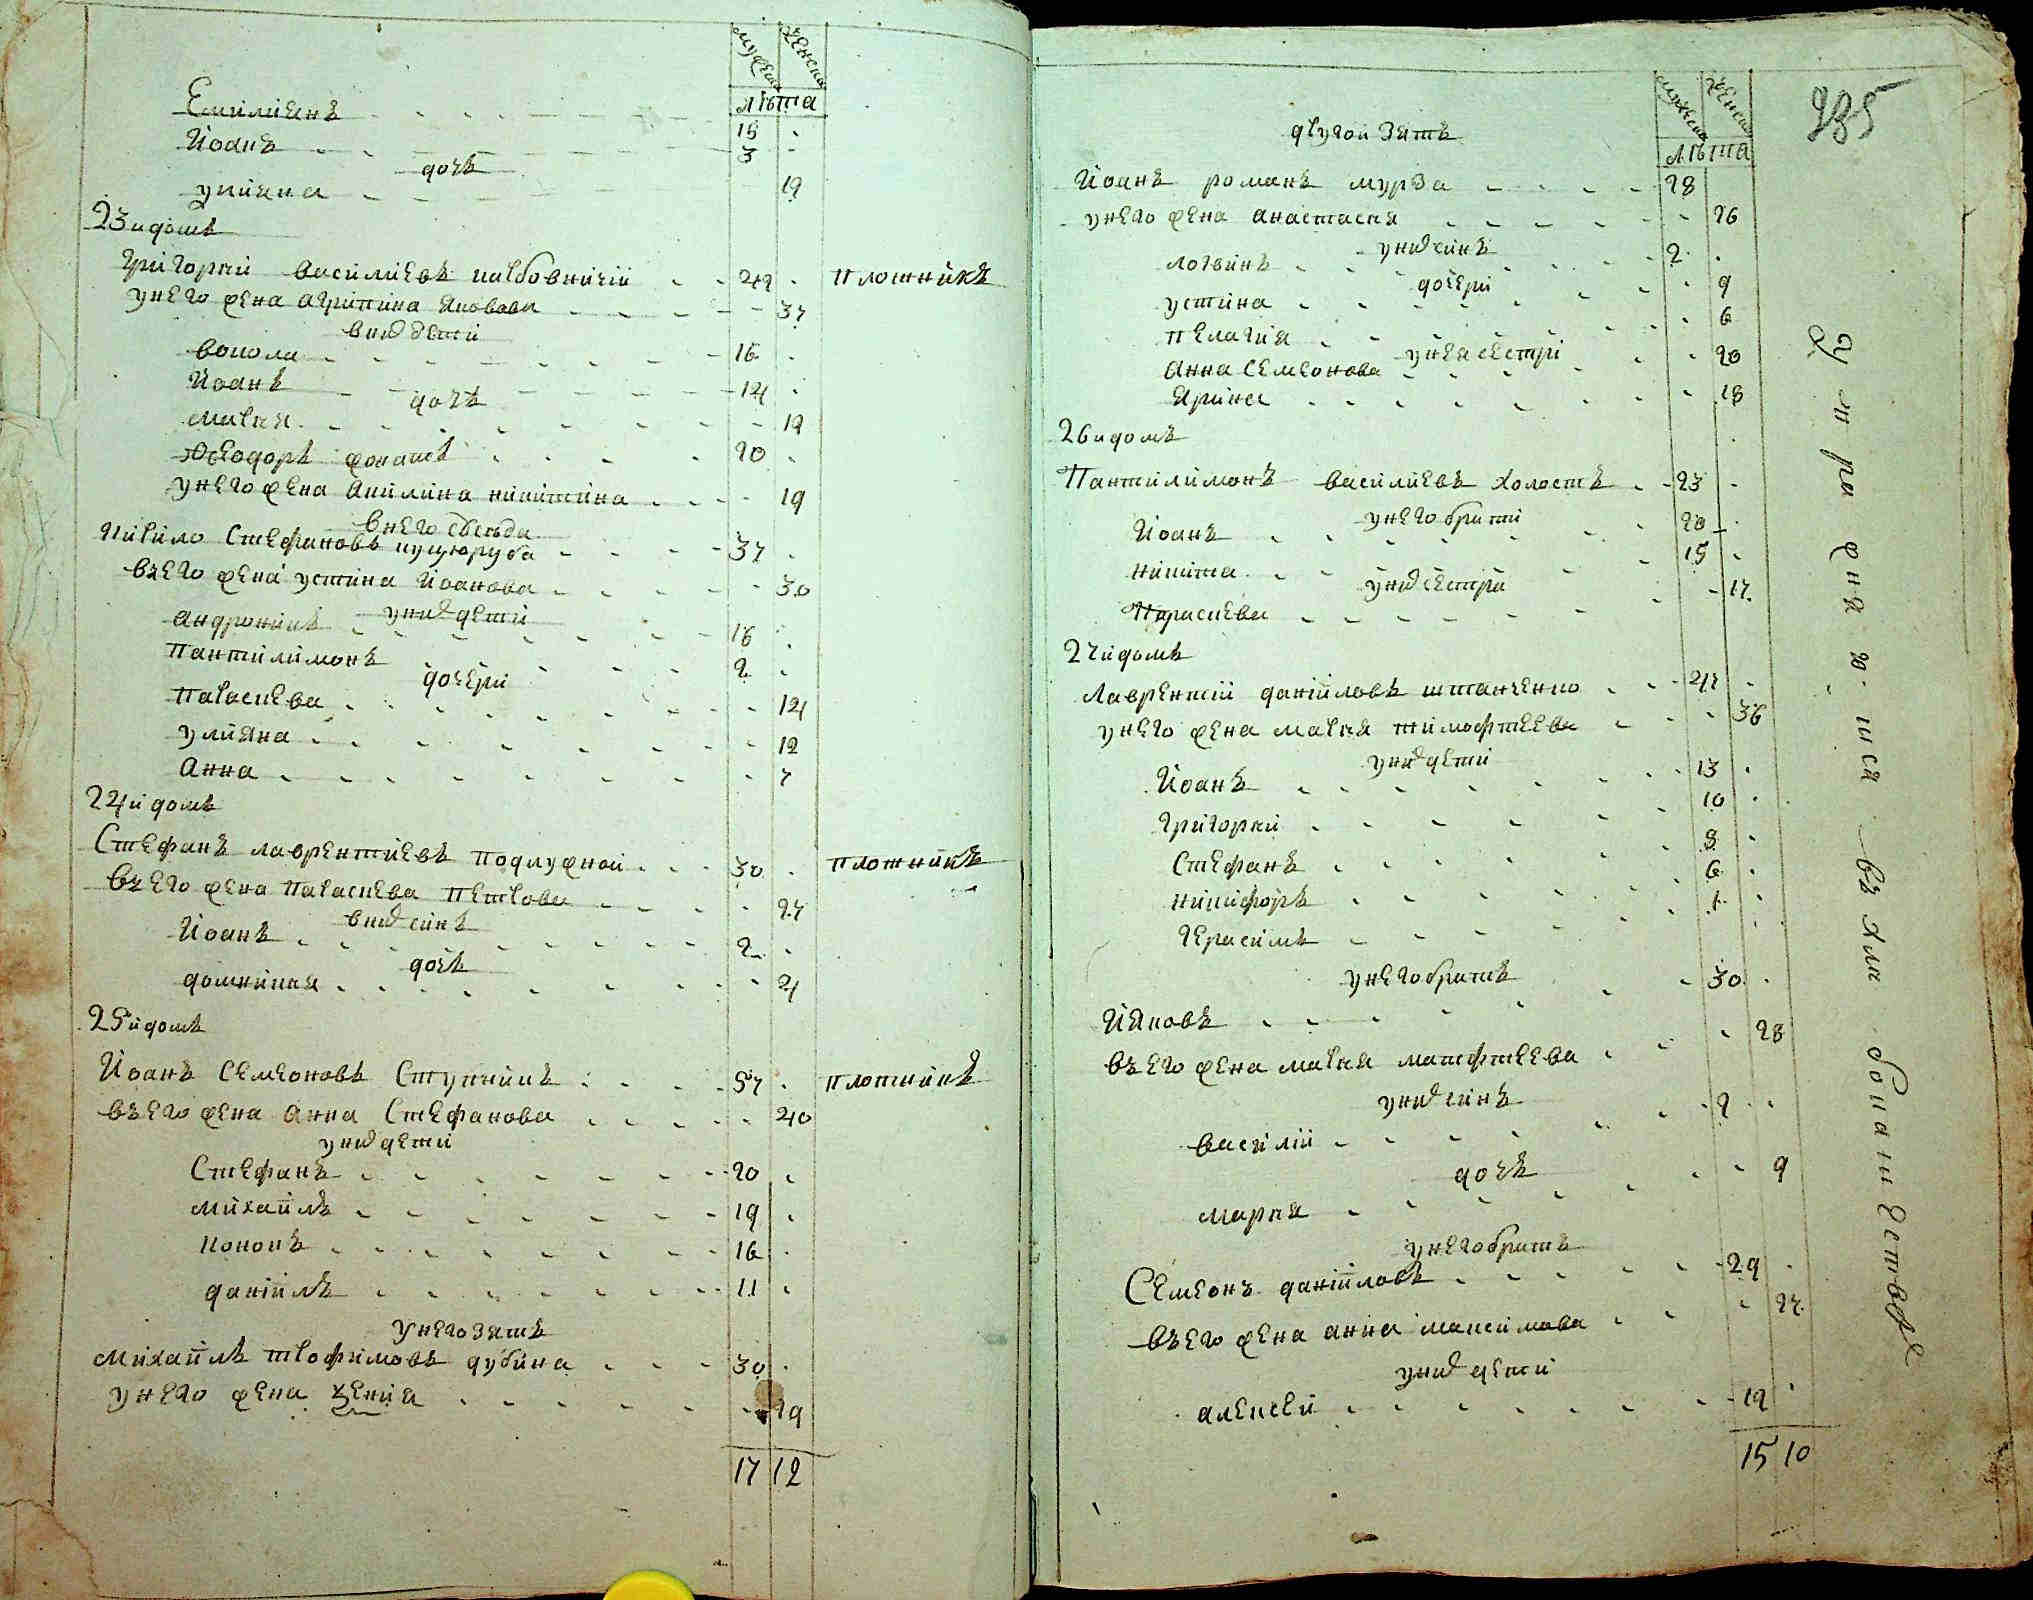 мужеска женска
лѣта
Емилиянъ 15
Йоанъ 3
дочъ
улияна 12
23 й домъ
Григорий Василиевъ 42 плотникъ
у него жена Агрипина Яковова 37
в них дети
вокола 16
Йоанъ 14
дочъ
мария 12
Феодоръ 20
у него жена Акилина никитина 19
в него
Кирило Стефановъ 37
въ его жена устина Йоанова 30
у них дети
андроникъ 16
Пантилимонъ 2
дочери
Параскева 14
улияна 12
Анна 7
24 й домъ
Стефанъ лаврентиевъ подлужной 30 плотникъ
въ его жена Параскева Петрова 27
в них синъ
Йоанъ 2
дочъ
домникия 4
25 й домъ
Йоанъ Семеоновъ Ступникъ 57 плотникъ
въ его жена Анна Стефанова 40
у них дети
Стефанъ 20
михайлъ 19
кононъ 16
данийлъ 11
у него зять
михайлъ трофимовъ дубина 30
у него жена Ксения 29
17 12
мужеска женска
235
лѣта
другой зять
Йоанъ романъ мурза 28
у него жена анастасия 26
у них синъ
логвинъ 2
дочери
устина 9
пелагия 6
у нея сестри
Анна Семеонова 20
Ярина 18
26 й домъ
Пантилимонъ василиевъ холостъ 23
у него брати
Йоанъ 20
никита 15
у них сестри
Параскева 17
27 й домъ
Лаврентий данийловъ штанченко 47
у него жена мария тимофтеева 36
у них дети
Йоанъ 13
Григорий 10
Стефанъ 8
никифоръ 6
Герасимъ 1
у него братъ
Йяковъ 30
въ его жена мария матфтеева 28
у них синъ
василий 2
дочъ
мария 9
у него братъ
Семеонъ данийловъ 29
въ его жена анна максимова 27
у них дети
алексей 12
15 10